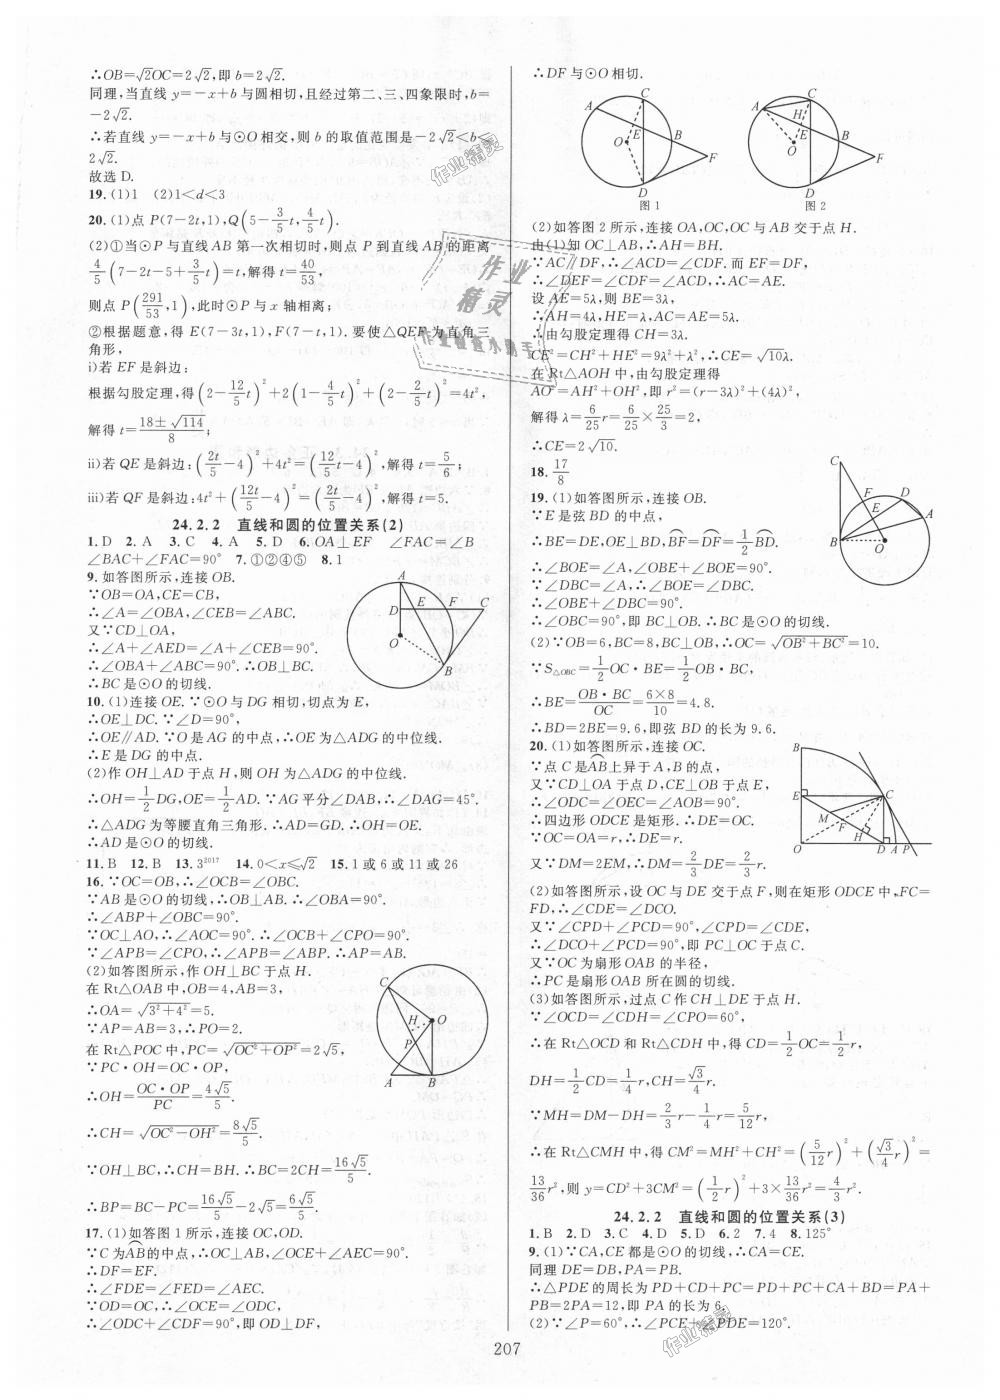 ∴OB=√2OC=2√2,即b=2√2.
同理,当直线y=-x+b与圆相切,且经过第二、三、四象限时,b=
-2√2.
∴若直线y=-x+b与⊙O相交,则b的取值范围是-2√2<b<
2√2.
故选D.
19.(1)1 (2)1<d<3
20.(1)点P(7-2t,1),Q(5-3/5t,4/5t).
(2)①当⊙P与直线AB第一次相切时,则点P到直线AB的距离
4/5(7-2t-5+3/5t)=t,解得t=40/53,
则点P(291/53,1),此时⊙P与x轴相离;
②根据题意,得E(7-3t,1),F(7-t,1).要使△QEF为直角三
角形,
i)若EF是斜边:
根据勾股定理,得(2-12/5t)²+2(1-4/5t)²+(2-2/5t)²=4t²,
解得t=(18±√114)/8;
ii)若QE是斜边:(2t/5-4)²+4t²=(12/5t-4)²,解得t=5/6;
iii)若QF是斜边:4t²+(12t/5-4)²=(2t/5-4)²,解得t=5.
24.2.2 直线和圆的位置关系(2)
1.D 2.A 3.C 4.A 5.D 6.OA⊥EF ∠FAC=∠B
∠BAC+∠FAC=90° 7.①②④⑤ 8.1
9.如答图所示,连接OB.
∵OB=OA,CE=CB,
∴∠A=∠OBA,∠CEB=∠ABC.
又∵CD⊥OA,
∴∠A+∠AED=∠A+∠CEB=90°.
∴∠OBA+∠ABC=90°.∴OB⊥BC.
∴BC是⊙O的切线.
10.(1)连接OE.∵⊙O与DG相切,切点为E,
∴OE⊥DC.∵∠D=90°,
∴OE∥AD.∵O是AG的中点,∴OE为△ADG的中位线.
∴E是DG的中点.
(2)作OH⊥AD于点H,则OH为△ADG的中位线.
∴OH=1/2DG,OE=1/2AD.∵AG平分∠DAB,∴∠DAG=45°.
∴△ADG为等腰直角三角形.∴AD=GD.∴OH=OE.
∴AD是⊙O的切线.
11.B 12.B 13.3²⁰¹⁷ 14.0<x≤√2 15.1或6或11或26
16.∵OC=OB,∴∠OCB=∠OBC.
∵AB是⊙O的切线,∴OB⊥AB.∴∠OBA=90°.
∴∠ABP+∠OBC=90°.
∵OC⊥AO,∴∠AOC=90°.∴∠OCB+∠CPO=90°.
∵∠APB=∠CPO,∴∠APB=∠ABP.∴AP=AB.
(2)如答图所示,作OH⊥BC于点H.
在Rt△OAB中,OB=4,AB=3,
∴OA=√(3²+4²)=5.
∵AP=AB=3,∴PO=2.
在Rt△POC中,PC=√(OC²+OP²)=2√5,
∵PC·OH=OC·OP,
∴OH=OC·OP/PC=4√5/5.
∴CH=√(OC²-OH²)=8√5/5.
∵OH⊥BC,∴CH=BH.∴BC=2CH=16√5/5.
∴BP=BC-PC=16√5/5-2√5=6√5/5.
17.(1)如答图1所示,连接OC,OD.
∵C为AB的中点,∴OC⊥AB.∴∠OCE+∠AEC=90°.
∴DF=EF.
∴∠FDE=∠FED=∠AEC.
∵OD=OC,∴∠OCE=∠ODC,
∴∠ODC+∠CDF=90°,即OD⊥DF,
∴DF与⊙O相切.
A C O E B D F
A C H E O B D F
图1 图2
(2)如答图2所示,连接OA,OC,OC与AB交于点H.
由(1)知OC⊥AB,∴AH=BH.
∵AC∥DF,∴∠ACD=∠CDF.而EF=DF,
∴∠DEF=∠CDF=∠ACD,∴AC=AE.
设AE=5λ,则BE=3λ,
∴AH=4λ,HE=λ,AC=AE=5λ.
∴由勾股定理得CH=3λ.
CE²=CH²+HE²=9λ²+λ²,∴CE=√10λ.
在Rt△AOH中,由勾股定理得
AO²=AH²+OH²,即r²=(r-3λ)²+(4λ)².
解得λ=6/25r=6/25×25/3=2,
∴CE=2√10.
18.17/8
19.(1)如答图所示,连接OB.
∵E是弦BD的中点,
∴BE=DE,OE⊥BD,BF=DF=1/2BD.
∴∠BOE=∠A,∠OBE+∠BOE=90°.
∵∠DBC=∠A,∴∠BOE=∠DBC.
∴∠OBE+∠DBC=90°.
∴∠OBC=90°,即BC⊥OB.∴BC是⊙O的切线.
(2)∵OB=6,BC=8,BC⊥OB,∴OC=√(OB²+BC²)=10.
∵S△OBC=1/2OC·BE=1/2OB·BC,
∴BE=OB·BC/OC=6×8/10=4.8.
∴BD=2BE=9.6,即弦BD的长为9.6.
20.(1)如答图所示,连接OC.
∵点C是AB上异于A,B的点,
又∵CD⊥OA于点D,CE⊥OB于点E,
∴∠ODC=∠OEC=∠AOB=90°.
∴四边形ODCE是矩形.∴DE=OC.
∵OC=OA=r,∴DE=r.
又∵DM=2EM,∴DM=2/3DE=2/3r.
(2)如答图所示,设OC与DE交于点F,则在矩形ODCE中,FC=
FD,∴∠CDE=∠DCO.
又∵∠CPD+∠PCD=90°,∠CPD=∠CDE,
∴∠DCO+∠PCD=90°,即PC⊥OC于点C.
又∵OC为扇形OAB的半径,
∴PC是扇形OAB所在的圆的切线.
(3)如答图所示,过点C作CH⊥DE于点H.
∵∠OCD=∠CDH=∠CPO=60°,
∴在Rt△OCD和Rt△CDH中,得CD=1/2OC=1/2r,
DH=1/2CD=1/4r,CH=√3/4r.
∵MH=DM-DH=2/3r-1/4r=5/12r,
∴在Rt△CMH中,得CM²=MH²+CH²=(5/12r)²+(√3/4r)²=
13/36r²,则y=CD²+3CM²=(1/2r)²+3×13/36r²=4/3r².
24.2.2 直线和圆的位置关系(3)
1.B 2.D 3.C 4.D 5.D 6.2 7.4 8.125°
9.(1)∵CA,CE都是⊙O的切线,∴CA=CE.
同理DE=DB,PA=PB.
∴△PDE的周长为PD+CD+PC=PD+PC+CA+BD=PA+
PB=2PA=12,即PA的长为6.
(2)∵∠P=60°,∴∠PCE+∠PDE=120°.
207